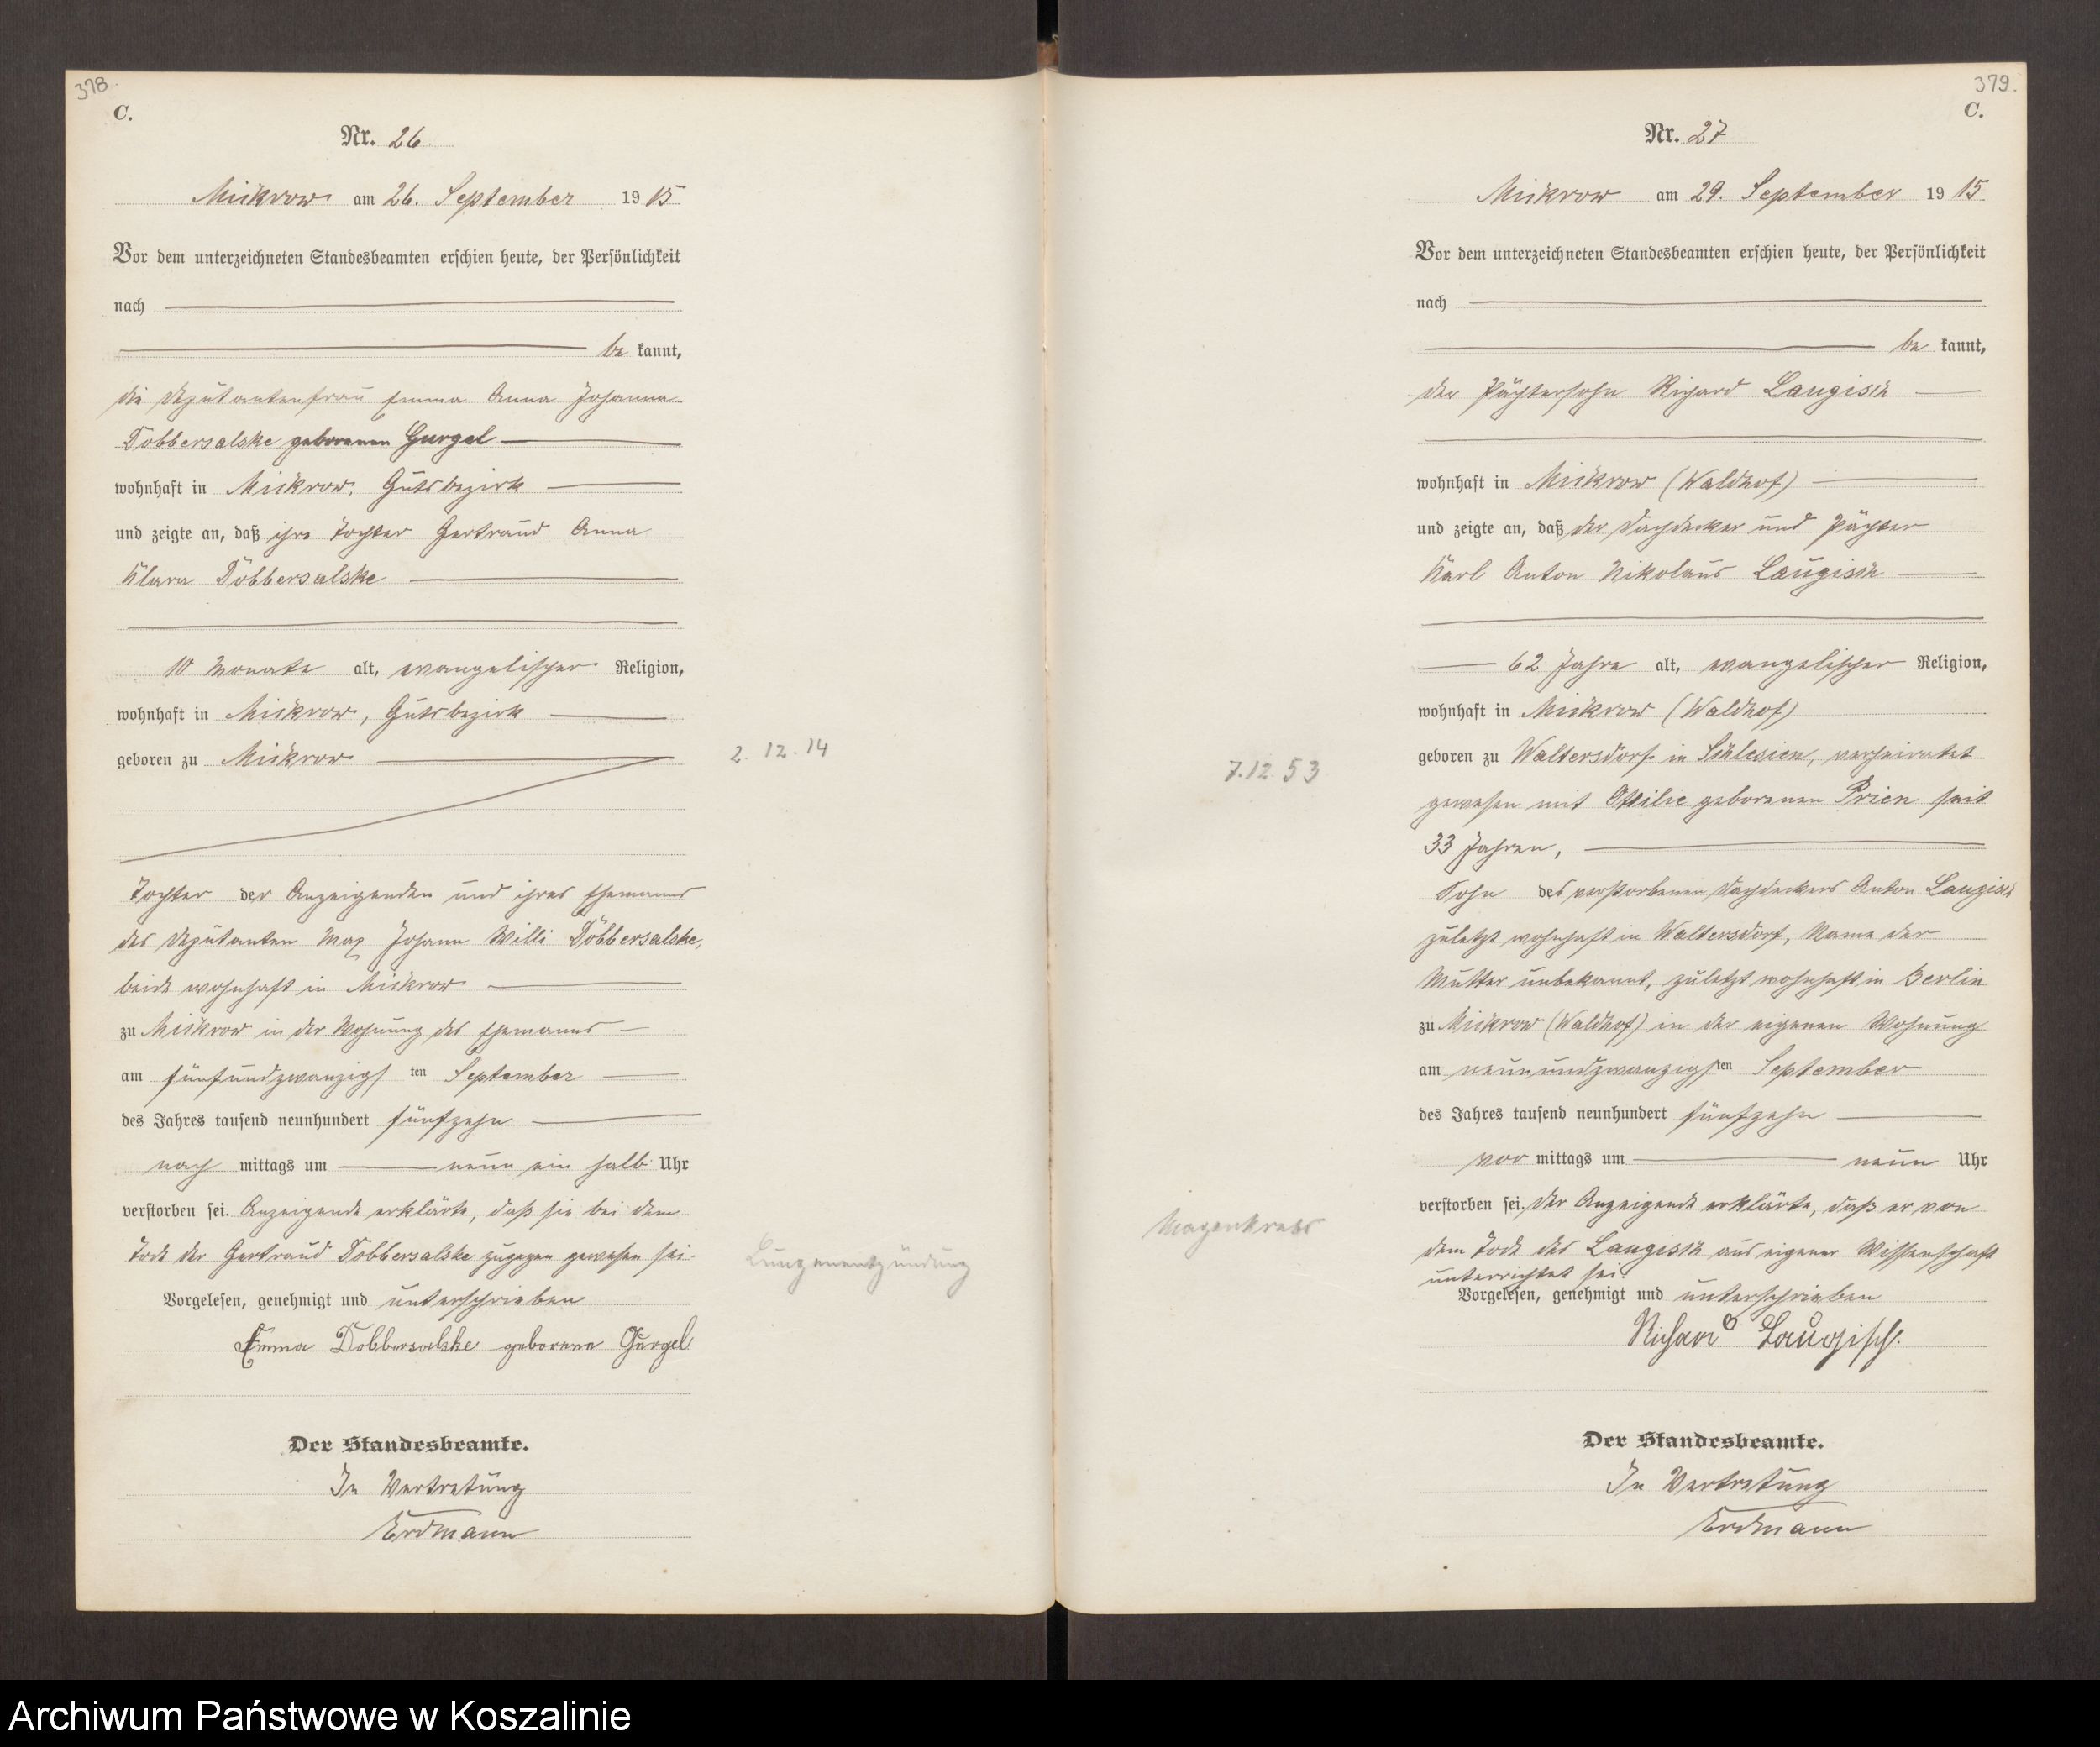 378.
C.
Nr. 26.
Mikrow am 26. September 1915
Vor dem unterzeichneten Standesbeamten erschien heute, der Persönlichkeit
nach
be kannt,
die Deputantenfrau Emma Anna Johanna
Dobbersalske geborenen Gurgel
wohnhaft in Mikrow, Gutsbezirk
und zeigte an, daß ihre Tochter Gertraud Anna
Klara Dobbersalske
10 Monate alt, evangelischer Religion,
wohnhaft in Mikrow, Gutsbezirk
geboren zu Mikrow
2.12.14
Tochter der Anzeigenden und ihres Ehemanns
des Deputanten Max Johann Willi Döbbersalske,
beide wohnhaft in Mikrow
zu Mikrow in der Wohnung des Ehemanns
am fünfundzwanzigs ten September
des Jahres tausend neunhundert fünfzehn
nach mittags um neun ein halb Uhr
verstorben sei. Anzeigende erklärte, daß sie bei dem
Tode der Gertraud Dobbersalske zugegen gewesen sei.
Lungenentzündung
Vorgelesen, genehmigt und unterschrieben
Emma Dobbersalske geborene Gurgel
Der Standesbeamte.
In Vertretung
Erdmann
379.
C.
Nr. 27
Mikrow am 29. September 1915
Vor dem unterzeichneten Standesbeamten erschien heute, der Persönlichkeit
nach
be kannt,
der Pächtersohn Richard Laugisch
wohnhaft in Mikrow (Waldhof)
und zeigte an, daß der Dachdecker und Pächter
Karl Anton Nikolaus Laugisch
62 Jahre alt, evangelischer Religion,
wohnhaft in Mikrow (Waldhof)
geboren zu Waltersdorf in Schlesien, verheiratet
7.12.53
gewesen mit Ottilie geborenen Prien seit
33 Jahren,
Sohn des verstorbenen Dachdeckers Anton Laugisch
zuletzt wohnhaft in Waltersdorf, Name der
Mutter unbekannt, zuletzt wohnhaft in Berlin
zu Mikrow (Waldhof) in der eigenen Wohnung
am neunundzwanzigsten September
des Jahres tausend neunhundert fünfzehn
vor mittags um neun Uhr
verstorben sei. Der Anzeigende erklärte, daß er von
Magenkrebs
dem Tode des Laugisch aus eigener Wissenschaft
unterrichtet sei.
Vorgelesen, genehmigt und unterschrieben
Richard Laugisch.
Der Standesbeamte.
In Vertretung
Erdmann
Archiwum Państwowe w Koszalinie